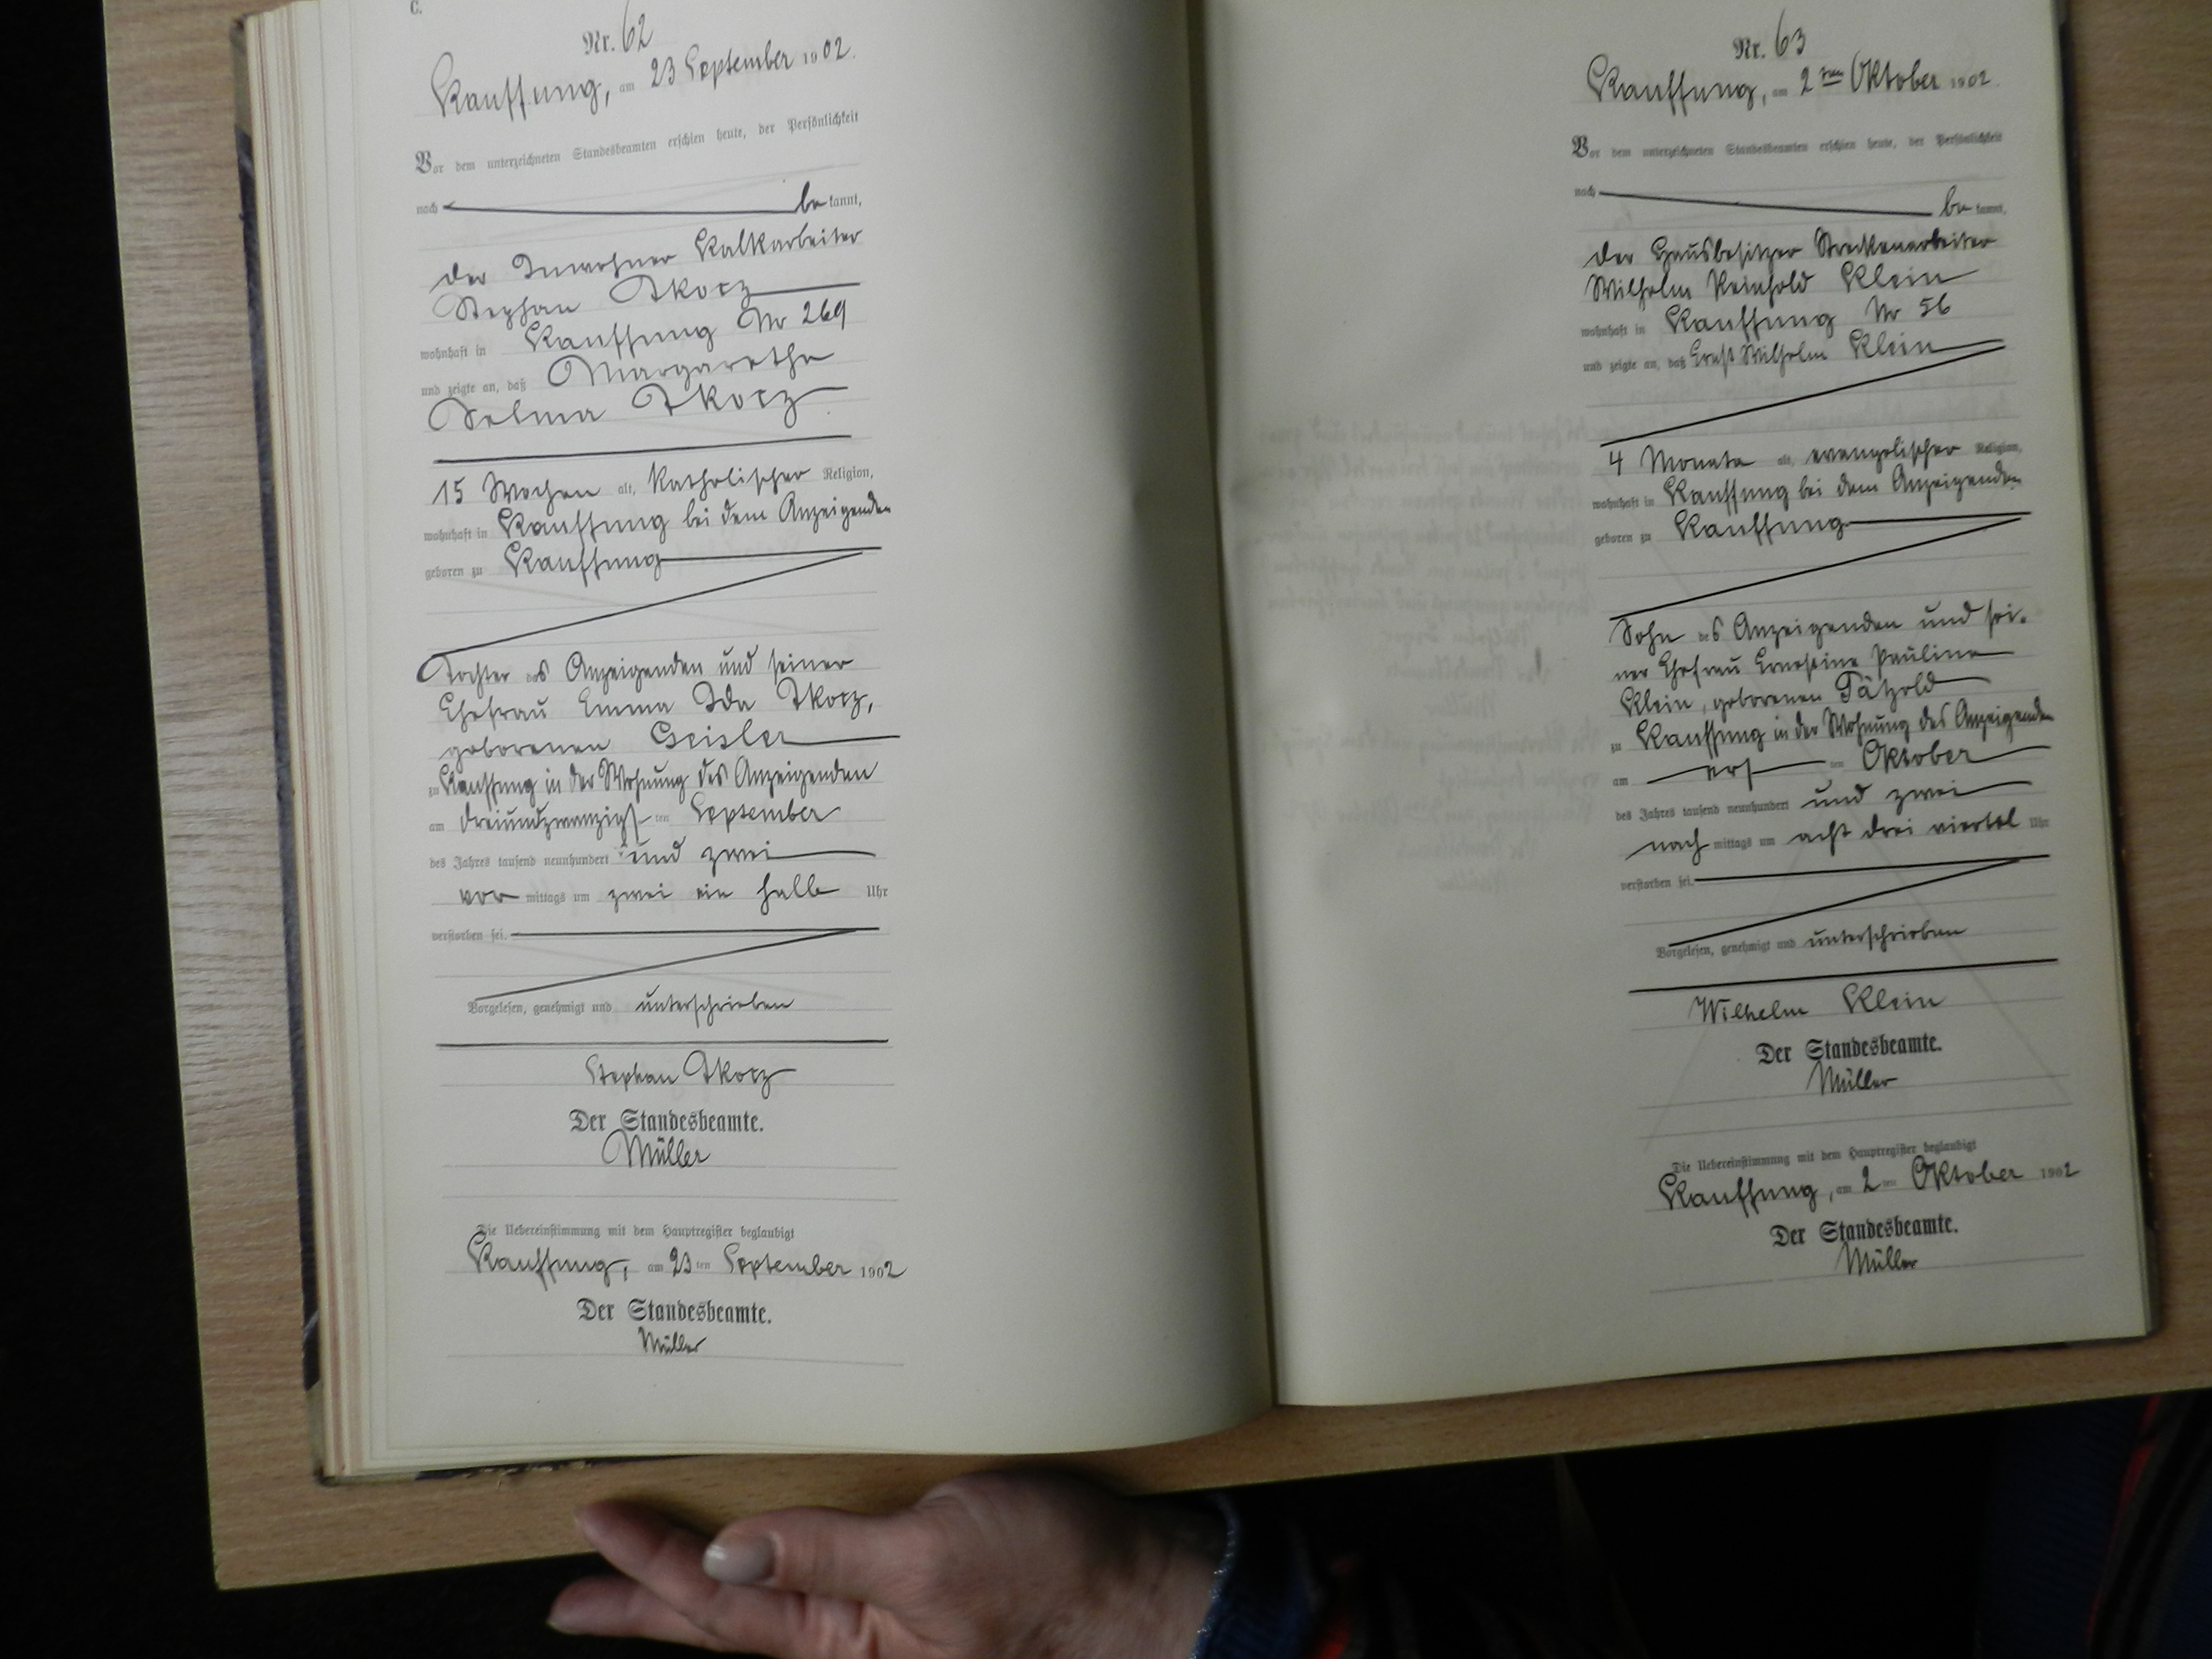 C.
Nr. 62
Kauffung, am 23 September 1902.
Vor dem unterzeichneten Standesbeamten erschien heute, der Persönlichkeit
nach be kannt,
der Inwohner Kalkarbeiter
Stephan Tkocz
wohnhaft in Kauffung Nr 269
und zeigte an, daß Margarethe
Selma Tkocz
15 Wochen alt, katholischer Religion,
wohnhaft in Kauffung bei dem Anzeigenden
geboren zu Kauffung
Tochter des Anzeigenden und seiner
Ehefrau Emma Ida Tkocz,
geborenen Geisler
zu Kauffung in der Wohnung des Anzeigenden
am dreiundzwanzigsten September
des Jahres tausend neunhundert und zwei
vor mittags um zwei ein halb Uhr
verstorben sei.
Vorgelesen, genehmigt und unterschrieben
Stephan Tkocz
Der Standesbeamte.
Müller
Die Uebereinstimmung mit dem Hauptregister beglaubigt
Kauffung, am 23 ten September 1902
Der Standesbeamte.
Müller
Nr. 63
Kauffung, am 2ten Oktober 1902.
Vor dem unterzeichneten Standesbeamten erschien heute, der Persönlichkeit
nach be kannt,
der Hausbesitzer Streckenarbeiter
Wilhelm Reinhold Klein
wohnhaft in Kauffung Nr 56
und zeigte an, daß Ernst Wilhelm Klein
4 Monate alt, evangelischer Religion,
wohnhaft in Kauffung bei dem Anzeigenden
geboren zu Kauffung
Sohn des Anzeigenden und sei-
ner Ehefrau Ernestine Pauline
Klein, geborenen Pätzold
zu Kauffung in der Wohnung des Anzeigenden
am ersten Oktober
des Jahres tausend neunhundert und zwei
nach mittags um acht drei viertel Uhr
verstorben sei.
Vorgelesen, genehmigt und unterschrieben
Wilhelm Klein
Der Standesbeamte.
Müller
Die Uebereinstimmung mit dem Hauptregister beglaubigt
Kauffung, am 2 ten Oktober 1902
Der Standesbeamte.
Müller